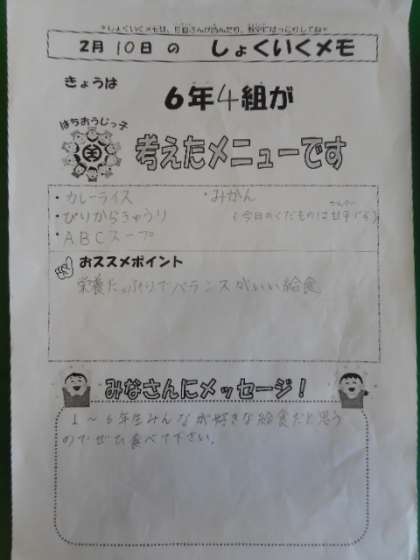 2月10日の しょくいくメモ
きょうは
6年4組が
はちおうじっ子
考えたメニューです
・カレーライス ・みかん
・ぴりからきゅうり (今日のくだものは甘平です)
・ABCスープ
おススメポイント
栄養たっぷりでバランスがいい給食
みなさんにメッセージ！
1～6年生みんなが好きな給食だと思う
のでぜひ食べて下さい。